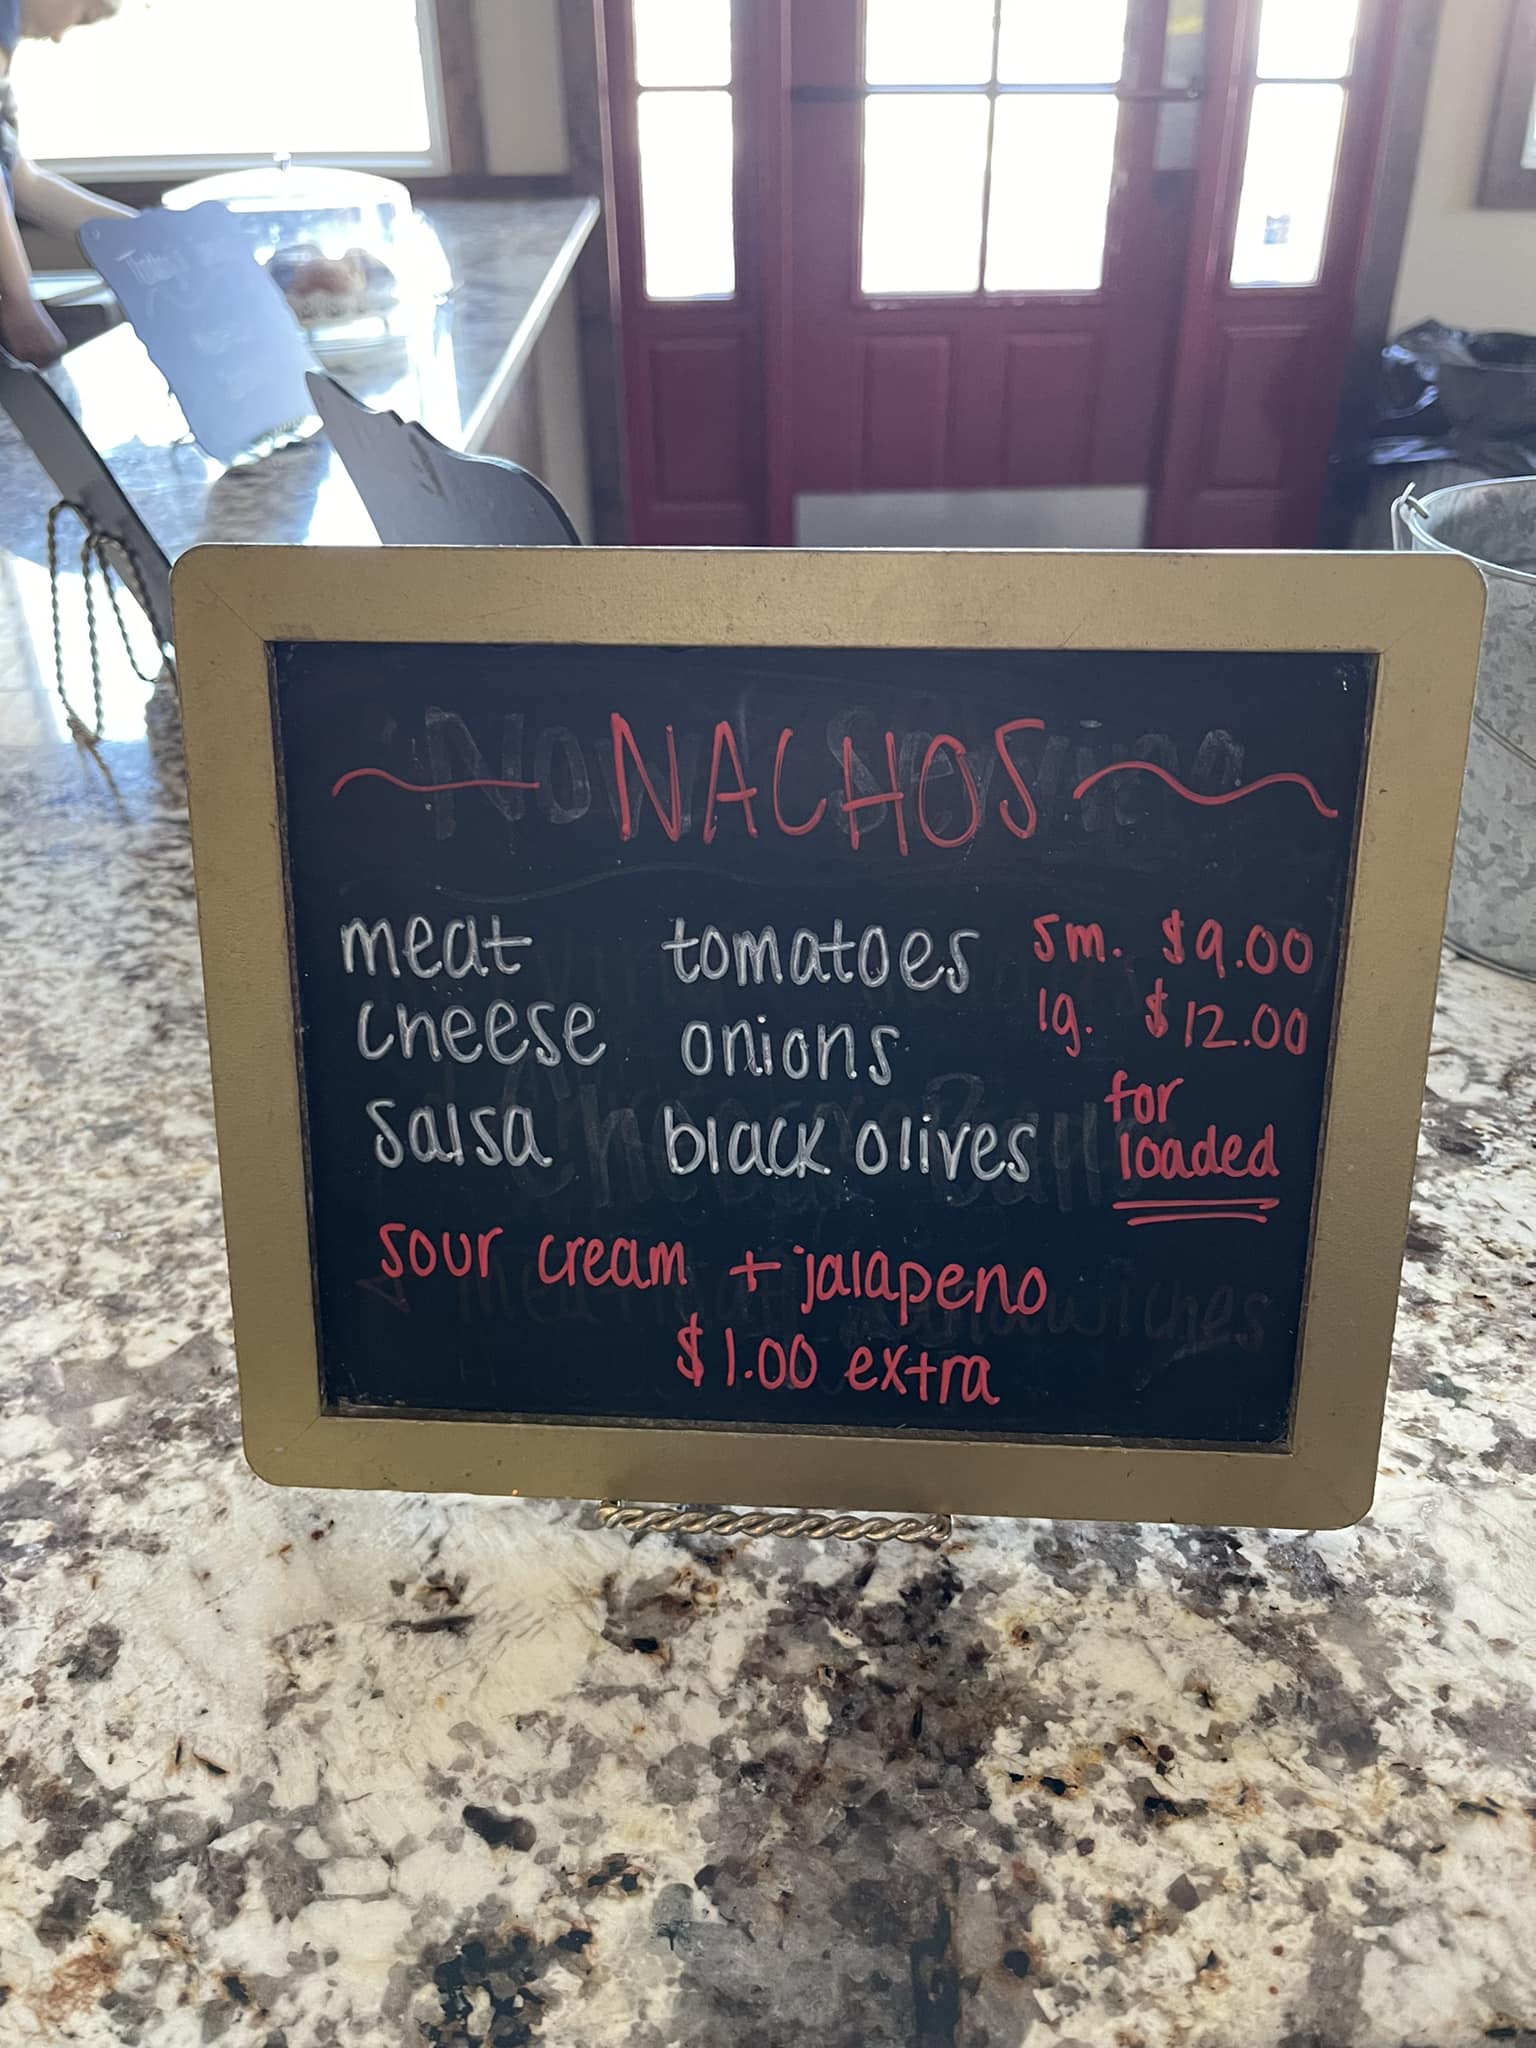 NACHOS
meat tomatoes sm. $9.00
cheese onions lg. $12.00
salsa black olives for loaded
sour cream + jalapeno
$1.00 extra
Now Serving